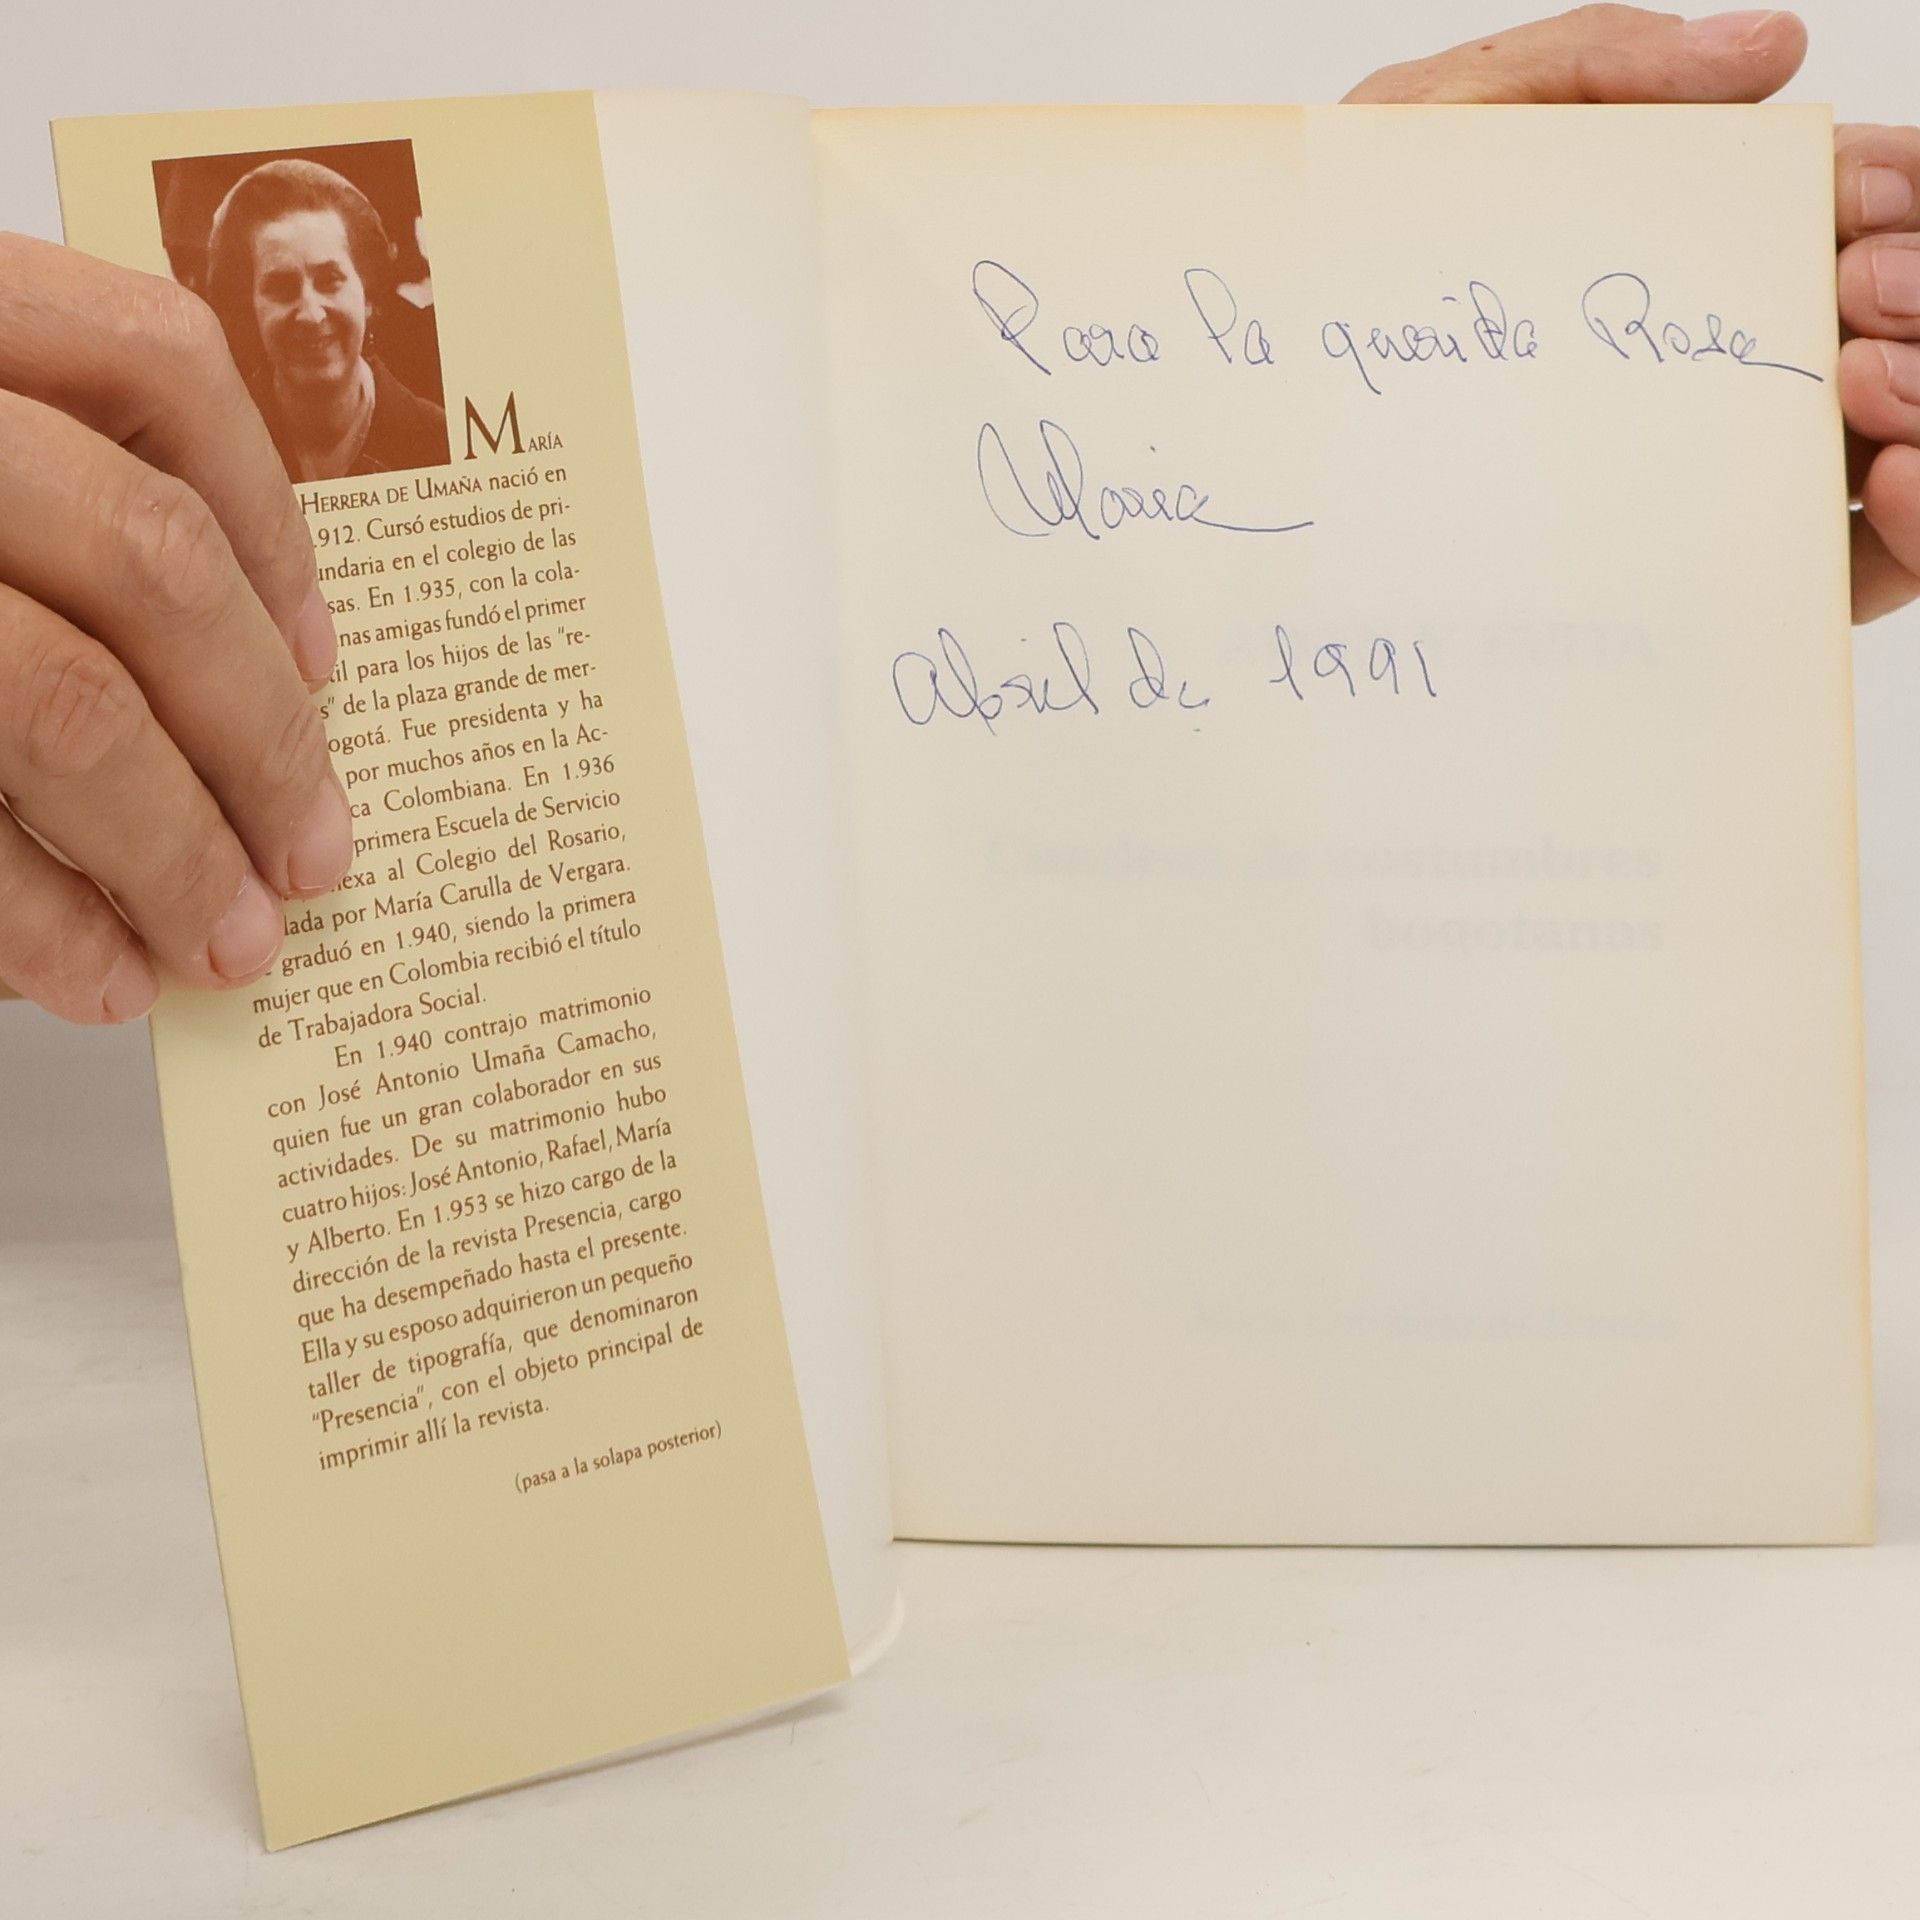 MARÍA
HERRERA DE UMAÑA nació en
.912. Cursó estudios de pri-
undaria en el colegio de las
sas. En 1.935, con la cola-
nas amigas fundó el primer
til para los hijos de las "re-
s" de la plaza grande de mer-
ogotá. Fue presidenta y ha
por muchos años en la Ac-
ca Colombiana. En 1.936
primera Escuela de Servicio
exa al Colegio del Rosario,
lada por María Carulla de Vergara.
graduó en 1.940, siendo la primera
mujer que en Colombia recibió el título
de Trabajadora Social.
En 1.940 contrajo matrimonio
con José Antonio Umaña Camacho,
quien fue un gran colaborador en sus
actividades. De su matrimonio hubo
cuatro hijos: José Antonio, Rafael, María
y Alberto. En 1.953 se hizo cargo de la
dirección de la revista Presencia, cargo
que ha desempeñado hasta el presente.
Ella y su esposo adquirieron un pequeño
taller de tipografía, que denominaron
"Presencia", con el objeto principal de
imprimir allí la revista.
(pasa a la solapa posterior)
Para la querida Rosa
Maria
Abril de 1991